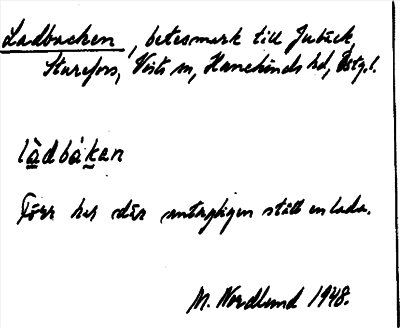 Ladbacken, betesmark till Jubäck,
Sturefors, Vists sn, Hanekinds hd, Östg.l.
làdbákan
Förr har där antagligen stått en lada.
M. Nordlund 1948.